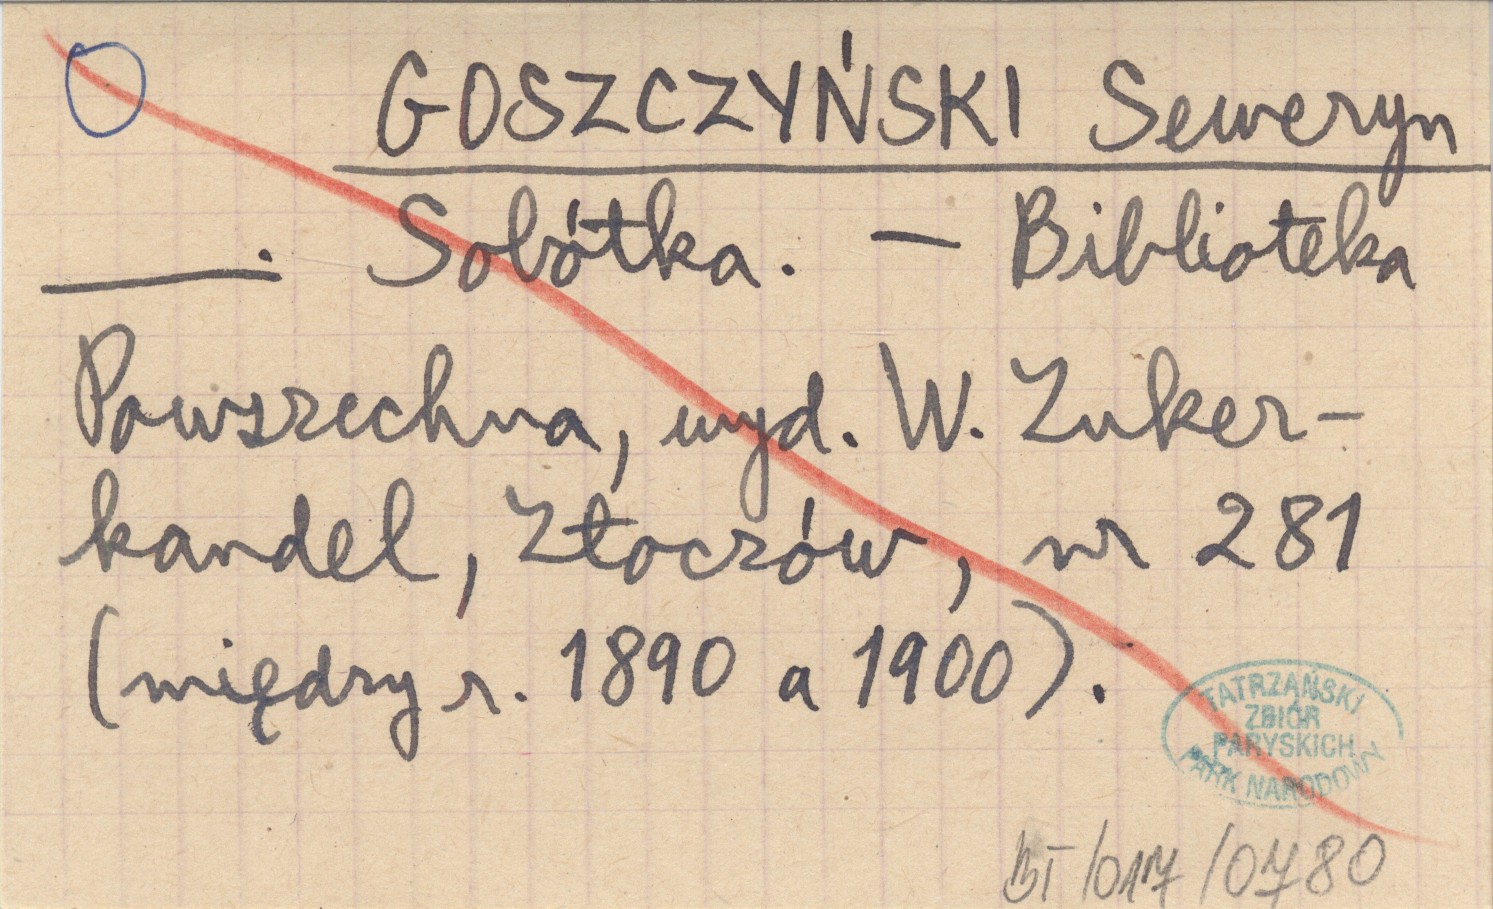 GOSZCZYŃSKI Seweryn
——. Sobótka. — Biblioteka
Powszechna, wyd. W. Zuker-
kandel, Złoczów, nr 281
(między r. 1890 a 1900).
TATRZAŃSKI
ZBIÓR
PARYSKICH
PARK NARODOWY
BT/017/0780